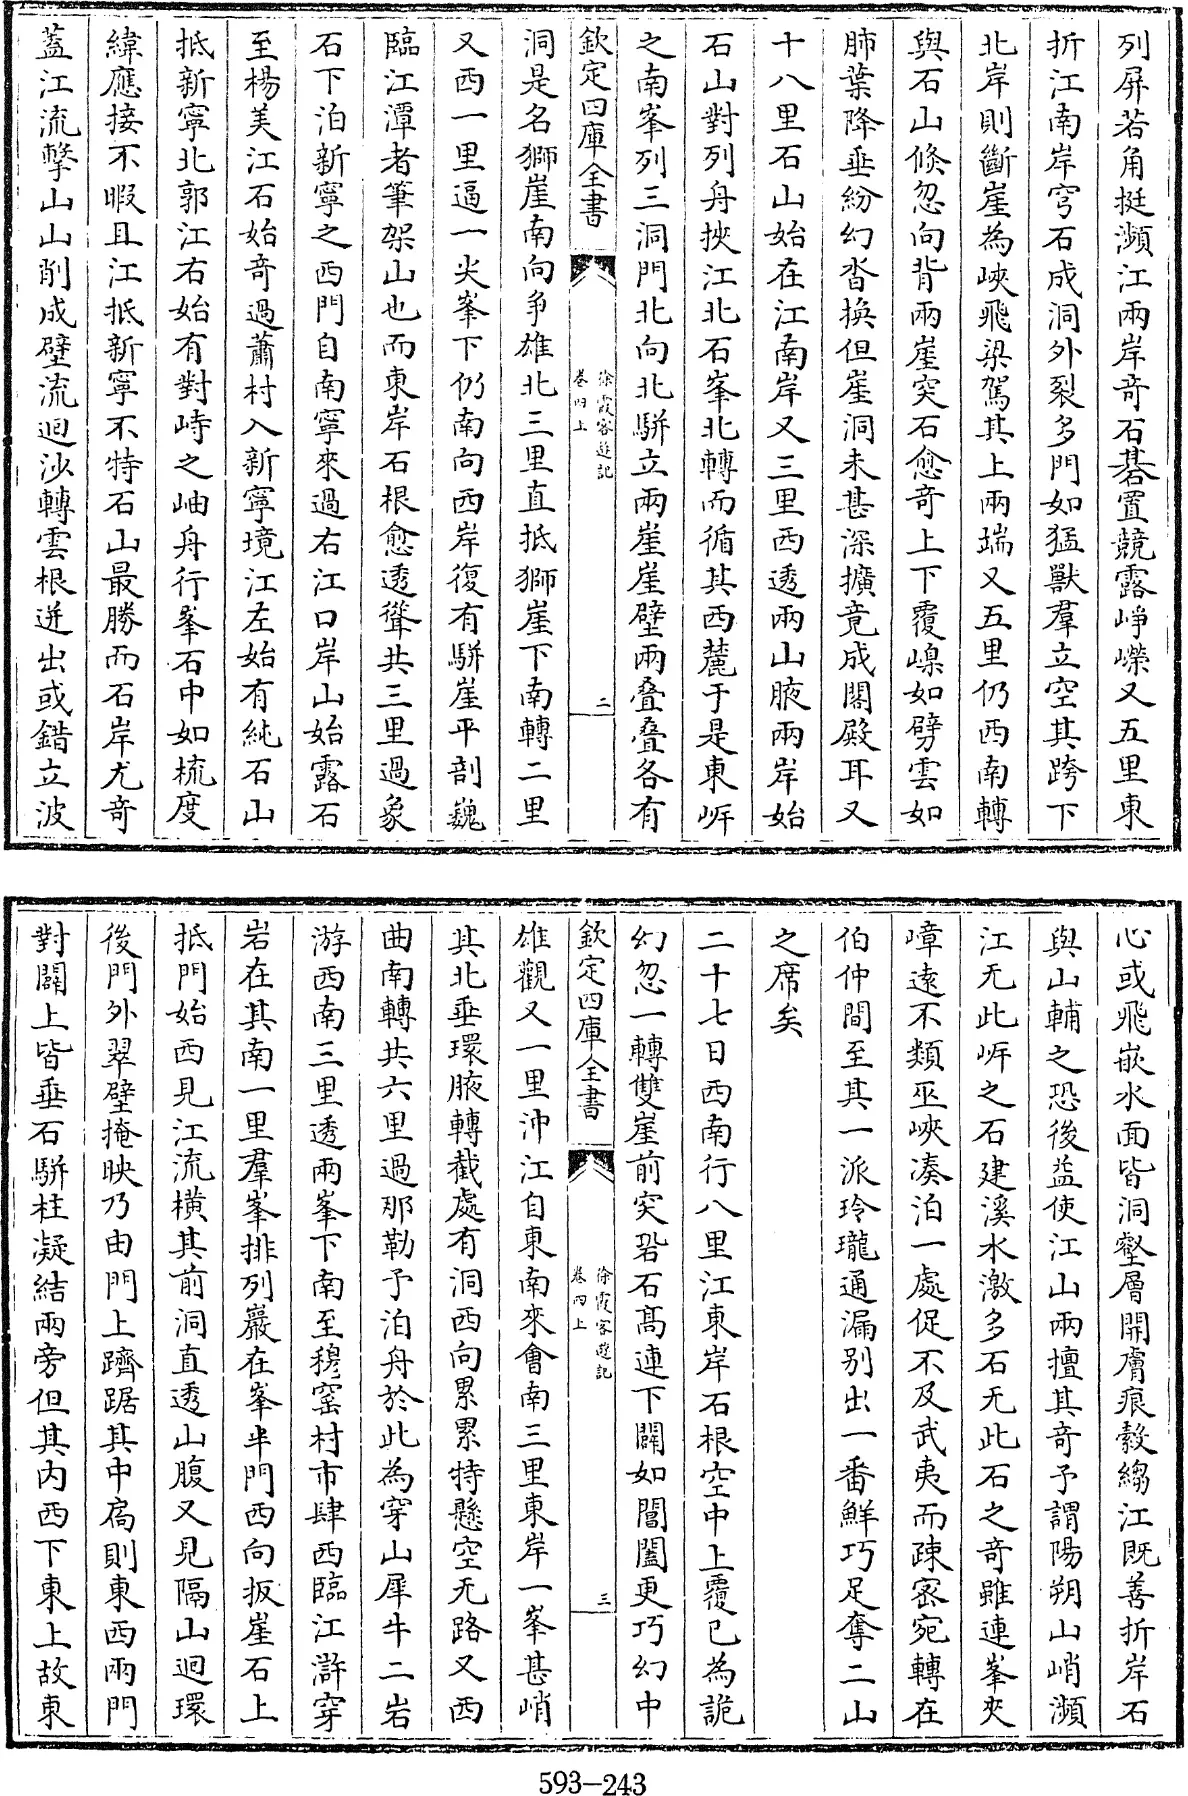 列屏若角挺瀕江兩岸竒石碁置競露崢嶸又五里東
折江南岸穹石成洞外裂多門如猛獸羣立空其跨下
北岸則斷崖為峽飛梁駕其上兩端又五里仍西南轉
與石山倐忽向背兩崖突石愈竒上下覆嵲如劈雲如
肺葉降垂紛幻沓換但崖洞未甚深擴竟成閣殿耳又
十八里石山始在江南岸又三里西透兩山腋兩岸始
石山對列舟挾江北石峯北轉而循其西麓于是東㟁
之南峯列三洞門北向北駢立兩崖崖壁兩叠叠各有
欽定四庫全書
徐霞客遊記
卷四上
二
洞是名獅崖南向争雄北三里直抵獅崖下南轉二里
又西一里逼一尖峯下仍南向西岸復有駢崖平剖巍
臨江潭者筆架山也而東岸石根愈透聳共三里過象
石下泊新寧之西門自南寧來過右江口岸山始露石
至楊美江石始竒過蕭村入新寧境江左始有純石山
抵新寧北郭江右始有對峙之岫舟行峯石中如梳度
緯應接不暇且江抵新寧不特石山最勝而石岸尤竒
蓋江流擊山山削成壁流迴沙轉雲根迸出或錯立波
心或飛嵌水面皆洞壑層開膚痕縠縐江既善折岸石
與山輔之恐後益使江山兩擅其竒予謂陽朔山峭瀕
江无此㟁之石建溪水激多石无此石之竒雖連峯夾
嶂遠不類巫峽湊泊一處促不及武夷而疎密宛轉在
伯仲間至其一派玲瓏通漏别出一番鮮巧足奪二山
之席矣
二十七日西南行八里江東岸石根空中上覆已為詭
幻忽一轉雙崖前突碞石高連下闢如閶闔更巧幻中
欽定四庫全書
徐霞客遊記
卷四上
三
雄觀又一里沖江自東南來會南三里東岸一峯甚峭
其北垂環腋轉截處有洞西向累累特懸空无路又西
曲南轉共六里過那勒予泊舟於此為穿山犀牛二岩
游西南三里透兩峯下南至穆窑村市肆西臨江滸穿
岩在其南一里羣峯排列巖在峯半門西向扳崖石上
抵門始西見江流横其前洞直透山腹又見隔山迴環
後門外翠壁掩映乃由門上躋踞其中扄則東西兩門
對闢上皆垂石駢柱凝結兩旁但其内西下東上故東
593-243